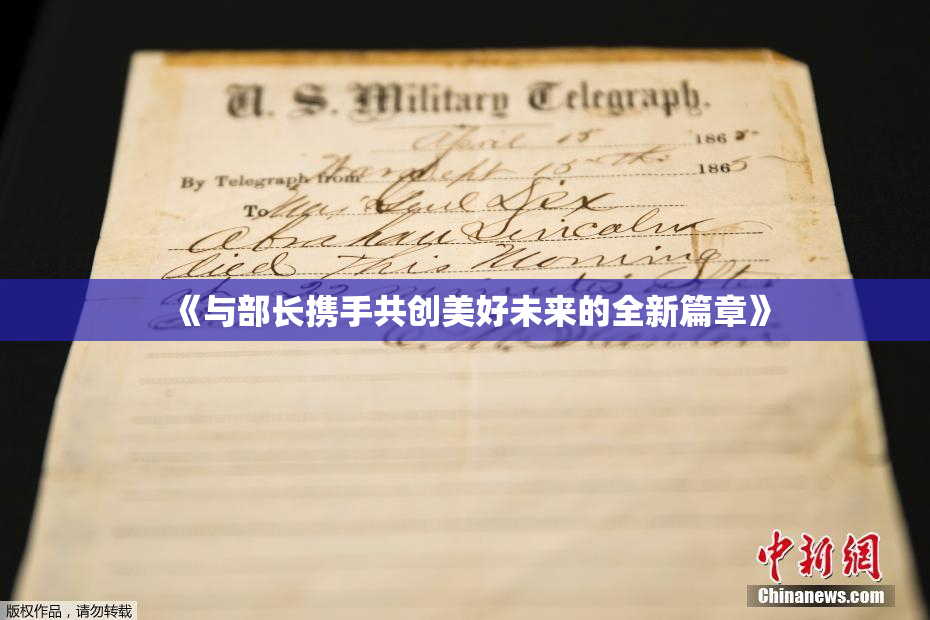 U. S. Military Telegraph.
April 15 1865
By Telegraph from War Dept 15th 1865
To Maj Genl Dix
Abraham Lincoln
died This Morning
《与部长携手共创美好未来的全新篇章》
22 minutes after
E. M. Stanton
中新網
Chinanews.com
版权作品，请勿转载